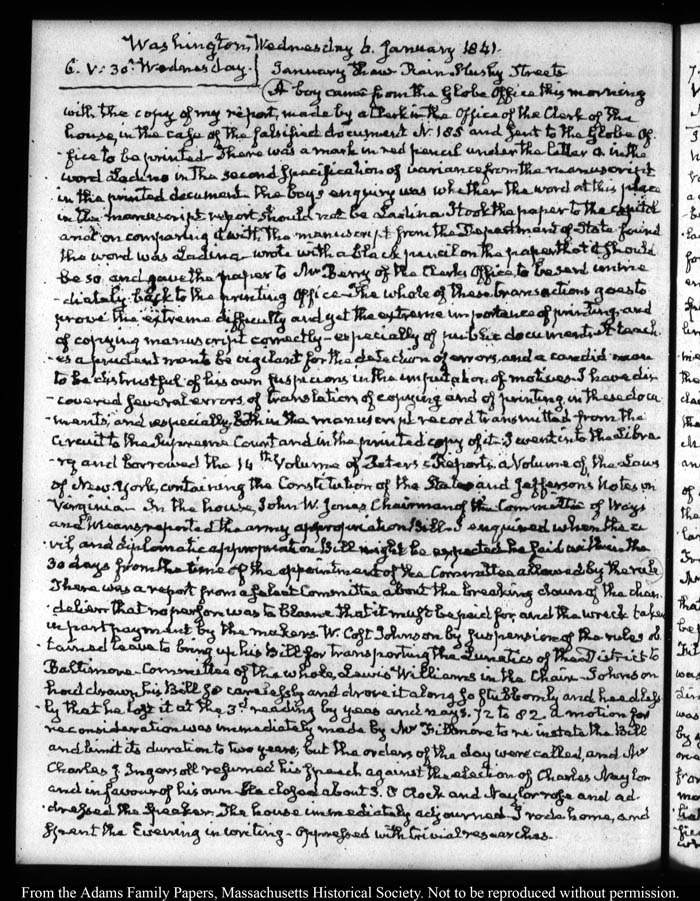 Washington, Wednesday 6. January 1841.
6. V: 30. Wednesday. January Thaw Rain Slushy Streets
A boy came from the Globe Office this morning
with the copy of my report, made by a Clerk in the Office of the Clerk of the
house, in the case of the falsified document N. 185 and sent to the Globe Of-
-fice to be printed. There was a mark in red pencil under the letter a in the
word Ladino in the second specification of variance from the manuscript
in the printed document the boy's enquiry was whether the word at this place
in the manuscript report should not be Ladina. I took the paper to the capitol
and on comparing it with the manuscript from the Department of State found
the word was Ladina wrote with a black pencil on the paper that it should
be so and gave the paper to Mr Berry of the Clerk's Office to be sent imme
-diately back to the printing Office. The whole of these transactions goes to
prove the extreme difficulty and yet the extreme importance of printing and
of copying manuscript correctly - especially of public documents. It teach-
-es a prudent man to be vigilant for the detection of errors, and a candid man
to be distrustful of his own suspicions in the imputation of motives. I have dis
-covered several errors, of translation of copying and of printing, in these docu
-ments, and especially both in the manuscript record transmitted from the
Circuit to the Supreme Court and in the printed copy of it. I went into the Libra
-ry and borrowed the 14th Volume of Peters's Reports, a Volume of the Laws
of New-York, containing the Constitution of the States and Jefferson's Notes on
Virginia - In the house, John W. Jones Chairman of the Committee of Ways
and Means reported the army appropriation Bill. I enquired when the ci
-vil, and diplomatic appropriation Bill might be expected he said within the
30 days from the time of the appointment of the Committee allowed by the rule
There was a report from a select Committee about the breaking down of the chan-
-delier that no person was to blame that it must be paid for, and the wreck taken
in part payment by the makers. W. Cost Johnson by suspension of the rules ob
-tained leave to bring up his Bill for transporting the Lunatics of the District to
Baltimore - Committee of the whole, Lewis Williams in the Chair - Johnson
had drawn his Bill so carelessly and drove it along so and heedless
-ly that he lost it at the 3d reading by yeas and nays. 72 to 82 a motion for
reconsideration was immediately made by Mr Fillmore to re instate the Bill
and limit its duration to two years, but the orders of the day were called, and Mr
Charles J. Ingersoll resumed his speech against the election of Charles Naylor
and in favour of his own. He closed about 3. O Clock and Naylor rose and ad
-dressed the Speaker. The house immediately adjourned I rode home, and
spent the Evening in writing - oppressed with trivial researches.
From the Adams Family Papers, Massachusetts Historical Society. Not to be reproduced without permission.